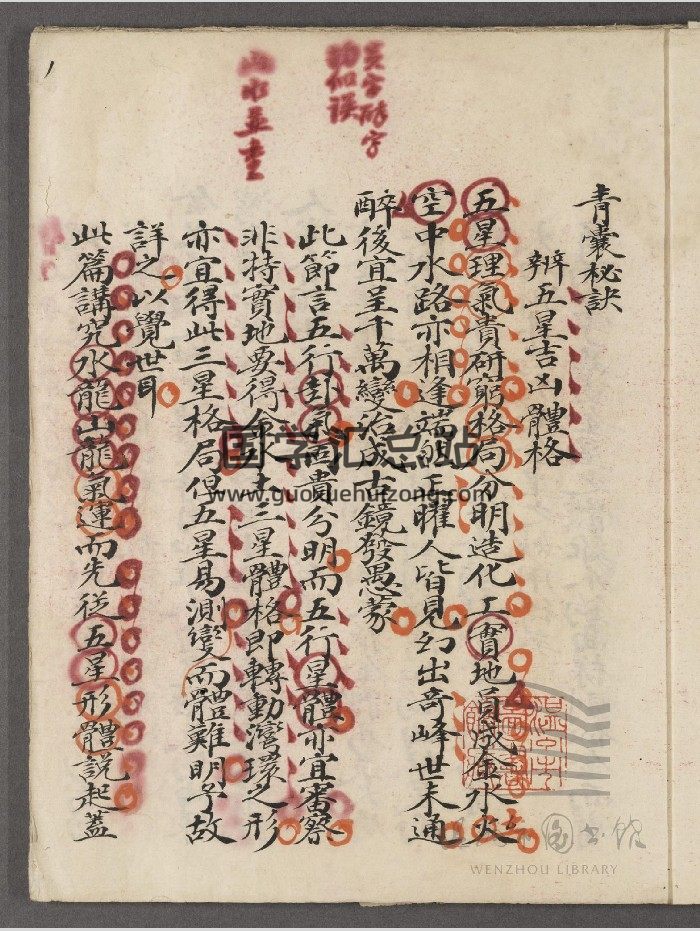 青囊秘訣
辨五星吉凶體格
五星理氣貴研窮格局分明造化工實地員成在水火
空中水路亦相逢端的五曜人皆見幻出奇峰世未通
醉後宜呈千萬變合成古鏡發愚蒙
此節言五行卦氣尚貴分明而五行星體亦宜審察
非持實地要得金水土三星體格即轉動灣環之形
亦宜得此三星格局俱五星易測變而體難明予故
詳之以覺世耳
此篇講究水龍山龍氣運而先從五星形體說起蓋
山水並重
1
国学汇总站
www.guoxuehuizong.com
WENZHOU LIBRARY